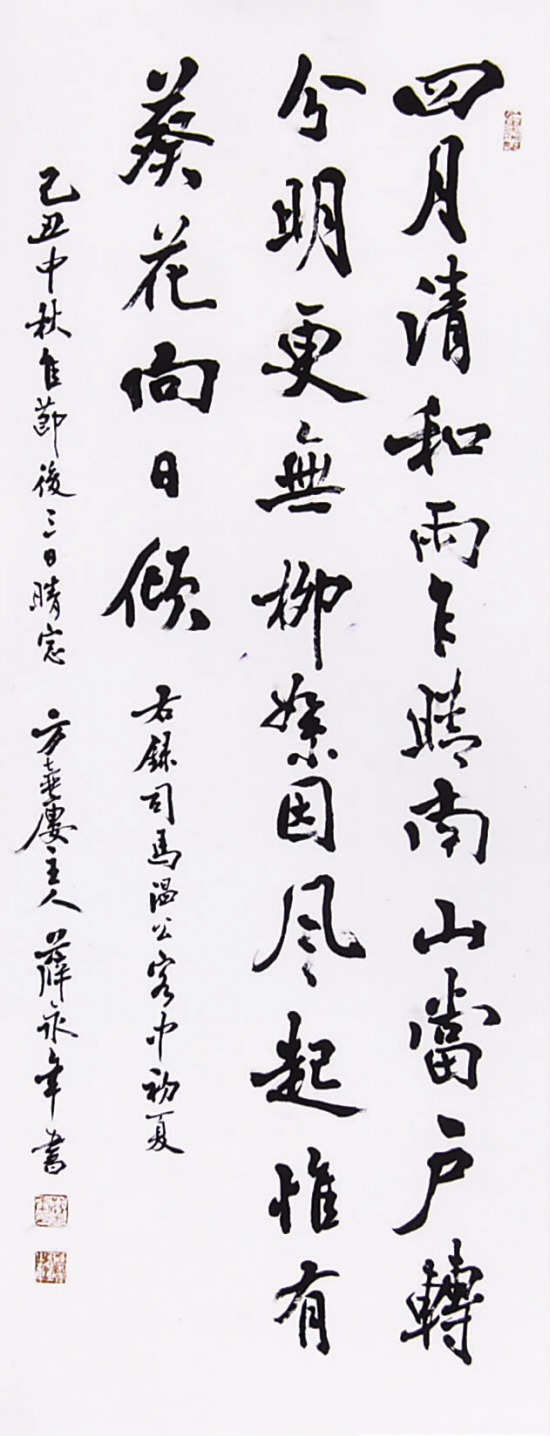 四月清和雨乍晴南山當户轉
分明更無柳絮因风起惟有
葵花向日傾
右録司馬温公客中初夏
己丑中秋佳節後三日晴窓 方壺廔主人 薛永年書